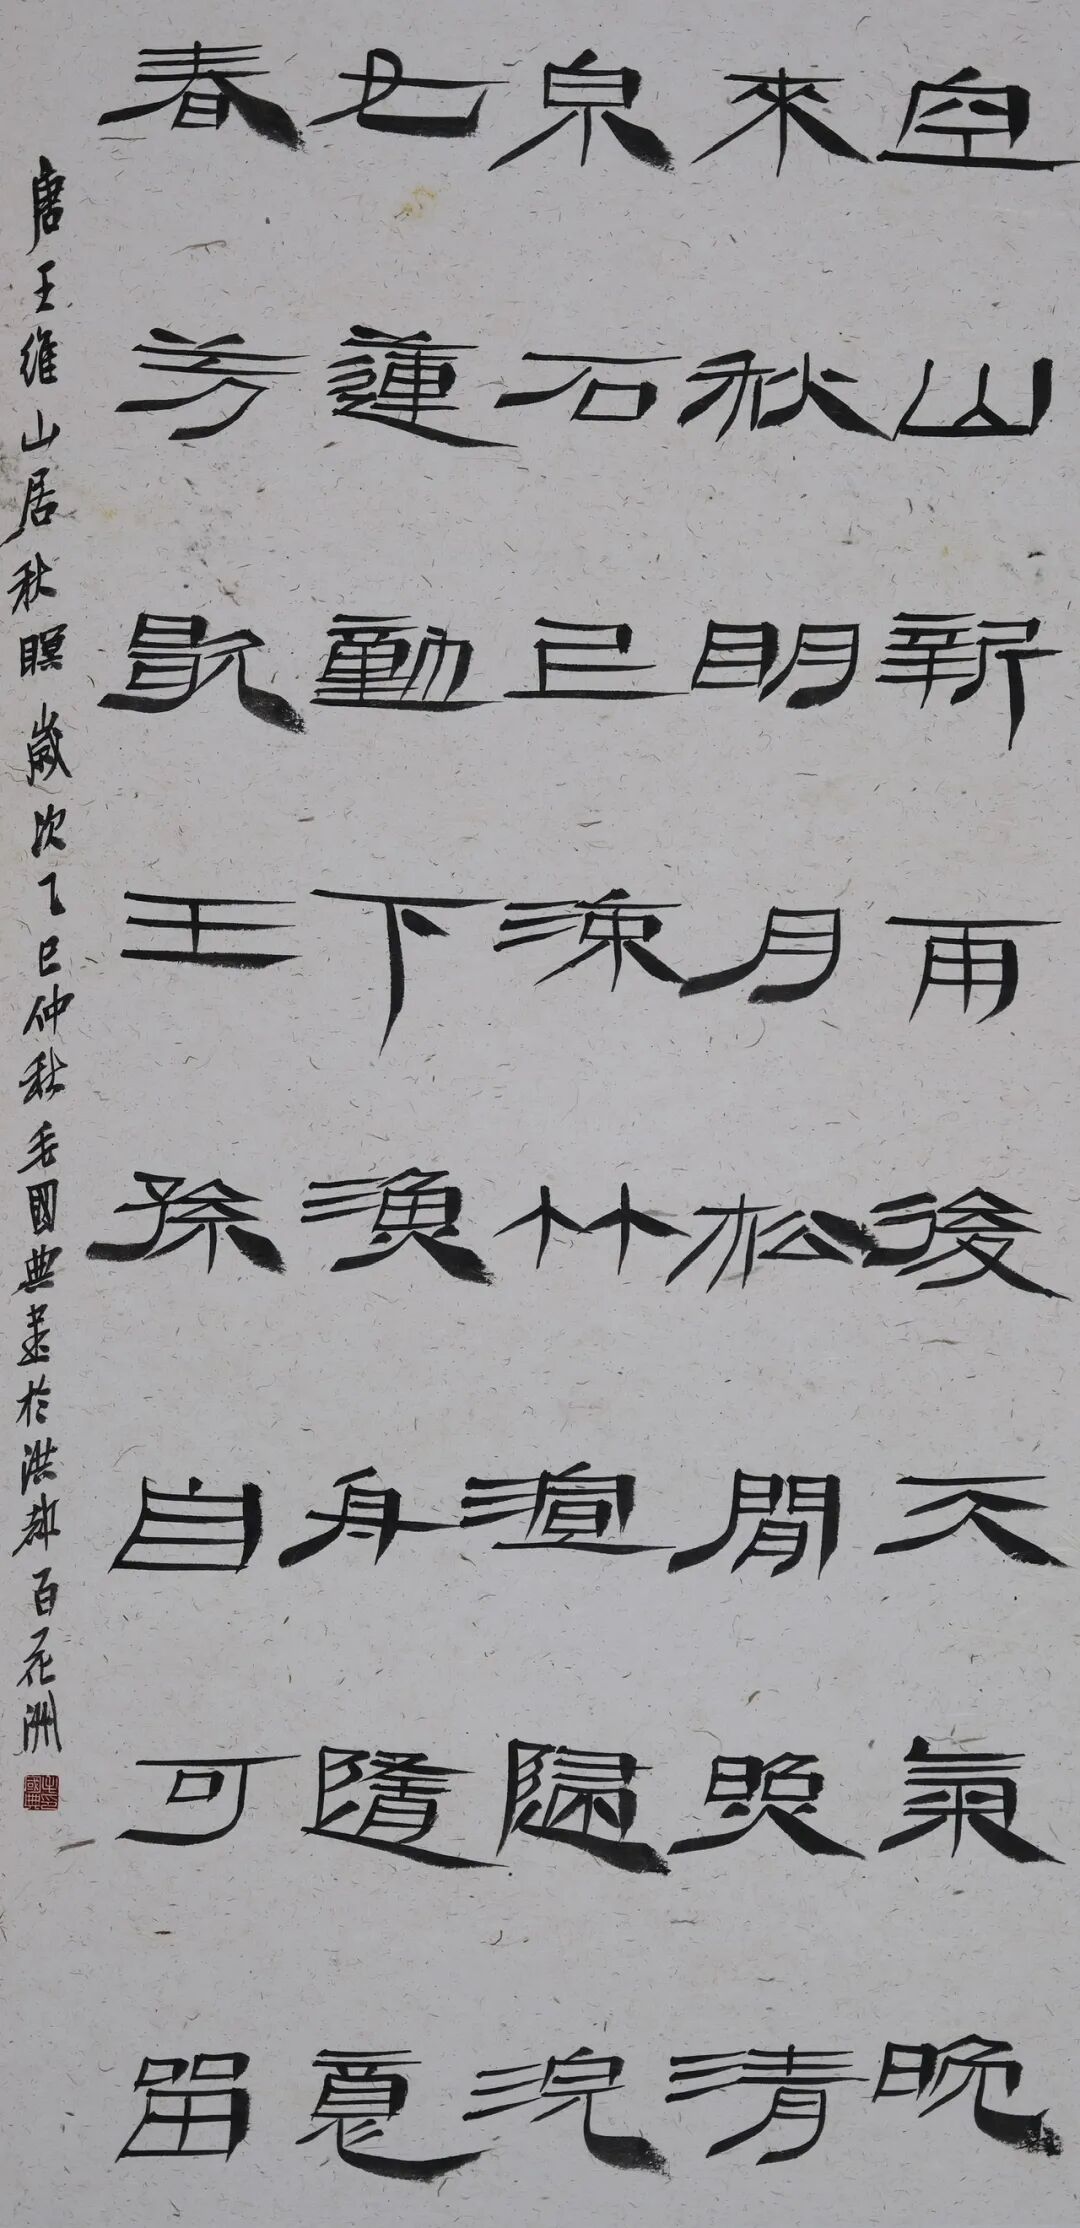 空山新雨後天氣晚
來秋明月松間照清
泉石上流竹喧歸浣
女蓮動下漁舟隨意
春芳歇王孫自可留
唐王維山居秋瞑歲次乙巳仲秋毛國典書於洪都百花洲